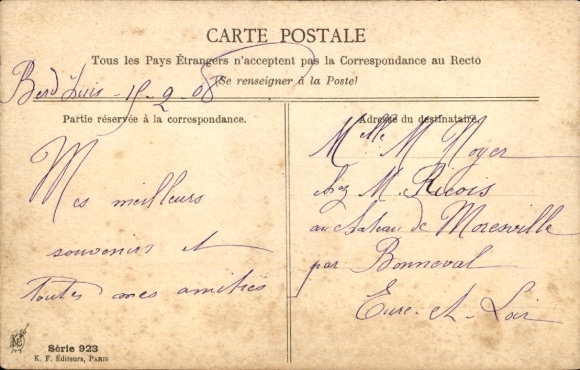 CARTE POSTALE
Tous les Pays Étrangers n'acceptent pas la Correspondance au Recto
(Se renseigner à la Poste)
15-2-08
Partie réservée à la correspondance.
Mes meilleurs
souvenirs et
toutes mes amitiés
Adresse du destinataire.
Melle M Noyer
chez M. Ricois
au chateau de Moresville
par Bonneval
Eure-et-Loir
Série 923
K. F. Éditeurs, PARIS